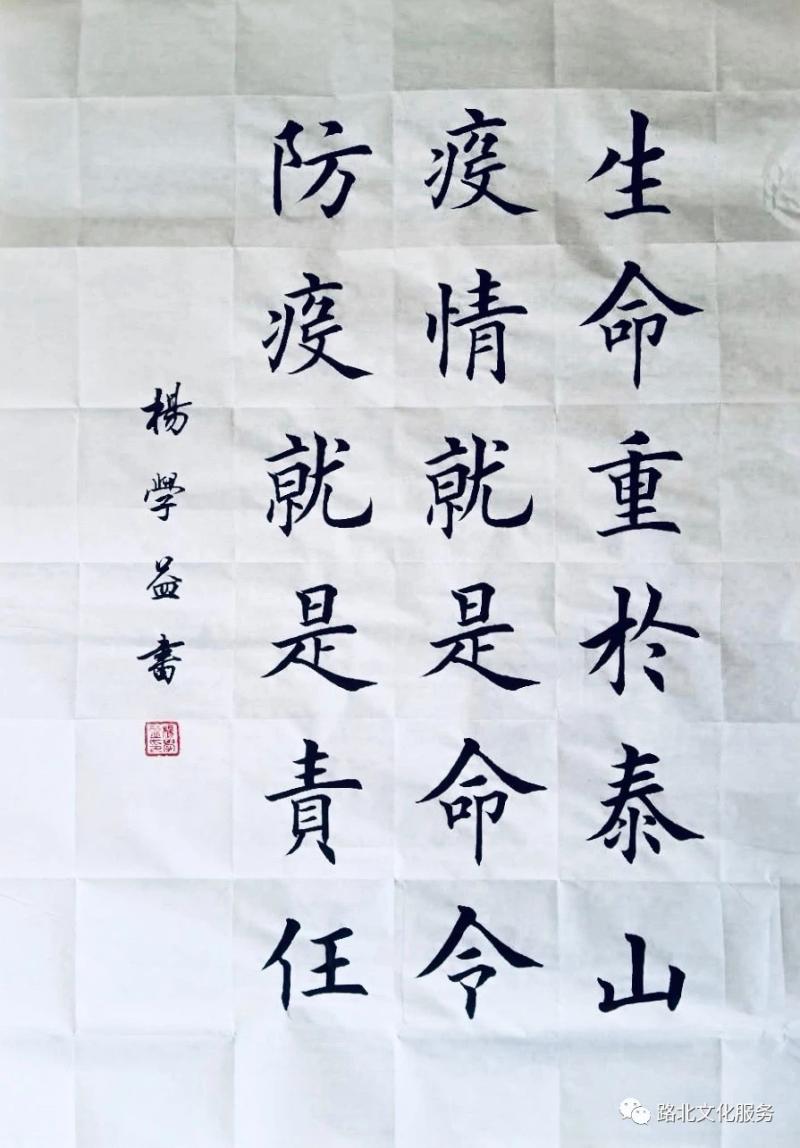 生命重於泰山
疫情就是命令
防疫就是責任
楊學益書
路北文化服务